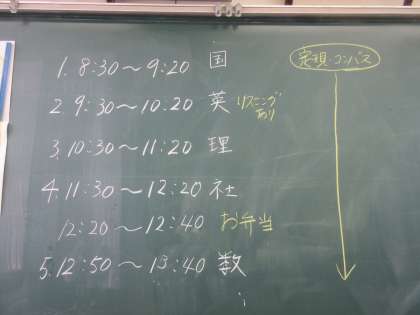 1. 8:30～9:20 国
2. 9:30～10:20 英 リスニングあり
3. 10:30～11:20 理
4. 11:30～12:20 社
12:20～12:40 お弁当
5. 12:50～13:40 数
定規・コンパス